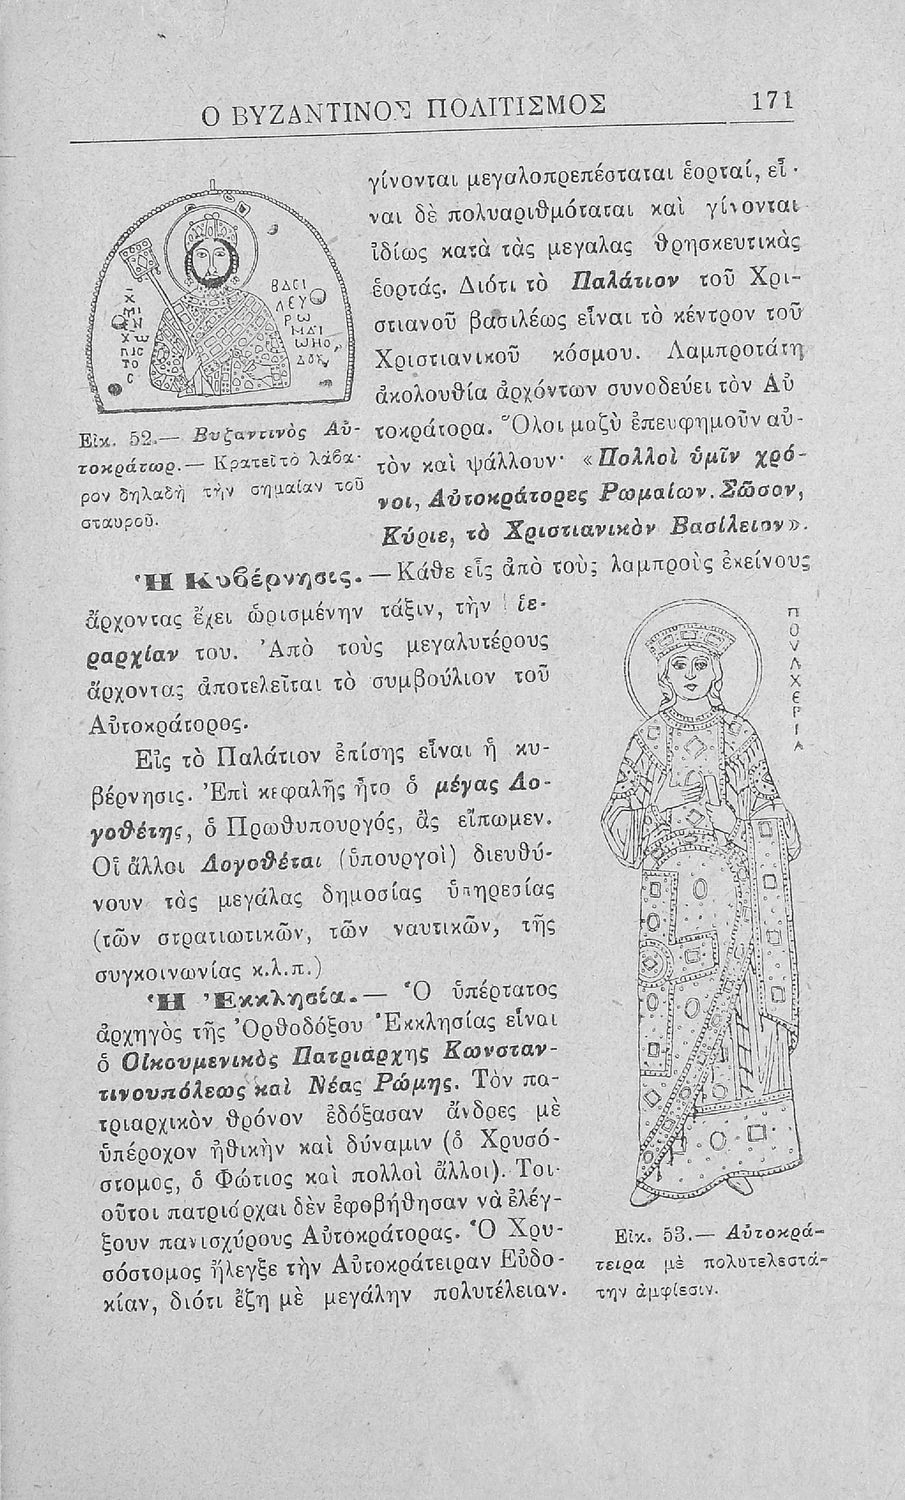 Ο ΒΥΖΑΝΤΙΝΟΣ ΠΟΛΙΤΙΣΜΟΣ 171
γίνονται μεγαλοπρεπέσταται ἑορταί, εἶ-
ναι δὲ πολυαριθμόταται καὶ γίνονται
ἰδίως κατὰ τὰς μεγαλας θρησκευτικὰς
ἑορτάς. Διότι τὸ Παλάτιον τοῦ Χρι-
στιανοῦ βασιλέως εἶναι τὸ κέντρον τοῦ
Χριστιανικοῦ κόσμου. Λαμπροτάτη
ἀκολουθία ἀρχόντων συνοδεύει τὸν Αὐ
τοκράτορα. Ὅλοι μαζὺ ἐπευφημοῦν αὐ-
τὸν καὶ ψάλλουν· «Πολλοὶ ὑμῖν χρό-
νοι, Αὐτοκράτορες Ρωμαίων. Σῶσον,
Κύριε, τὸ Χριστιανικὸν Βασίλειον».
ΒΑCΙ
ΛΕΥ
ΡΩ
ΜΑΙ
ΩΗΟ
ΔΟΣ
Χ
ΜΙ
Ν
Χω
ΠΙC
ΤΟ
C
Εἰκ. 52.— Βυζαντινὸς Αὐ-
τοκράτωρ.— Κρατεῖ τὸ λάβα-
ρον δηλαδὴ τὴν σημαίαν τοῦ
σταυροῦ.
Ἡ Κυβέρνησις.—Κάθε εἷς ἀπὸ τοὺς λαμπροὺς ἐκείνους
ἄρχοντας ἔχει ὡρισμένην τάξιν, τὴν ἱε-
ραρχίαν του. Ἀπὸ τοὺς μεγαλυτέρους
ἄρχοντας ἀποτελεῖται τὸ συμβούλιον τοῦ
Αὐτοκράτορος.
Εἰς τὸ Παλάτιον ἐπίσης εἶναι ἡ κυ-
βέρνησις. Ἐπὶ κεφαλῆς ἦτο ὁ μέγας Λο-
γοθέτης, ὁ Πρωθυπουργός, ἂς εἴπωμεν.
Οἱ ἄλλοι Λογοθέται (ὑπουργοὶ) διευθύ-
νουν τὰς μεγάλας δημοσίας ὑπηρεσίας
(τῶν στρατιωτικῶν, τῶν ναυτικῶν, τῆς
συγκοινωνίας κ.λ.π.)
Ἡ Ἐκκλησία.— Ὁ ὑπέρτατος
ἀρχηγὸς τῆς Ὀρθοδόξου Ἐκκλησίας εἶναι
ὁ Οἰκουμενικὸς Πατριάρχης Κωνσταν-
τινουπόλεως καὶ Νέας Ρώμης. Τὸν πα-
τριαρχικὸν θρόνον ἐδόξασαν ἄνδρες μὲ
ὑπέροχον ἠθικὴν καὶ δύναμιν (ὁ Χρυσό-
στομος, ὁ Φώτιος καὶ πολλοὶ ἄλλοι). Τοι-
οῦτοι πατριάρχαι δὲν ἐφοβήθησαν νὰ ἐλέγ-
ξουν πανισχύρους Αὐτοκράτορας. Ὁ Χρυ-
σόστομος ἤλεγξε τὴν Αὐτοκράτειραν Εὐδο-
κίαν, διότι ἔζη μὲ μεγάλην πολυτέλειαν.
Π
Ο
V
Λ
Χ
Ε
Ρ
Ι
Α
Εἰκ. 53.— Αὐτοκρά-
τειρα μὲ πολυτελεστά-
την ἀμφίεσιν.